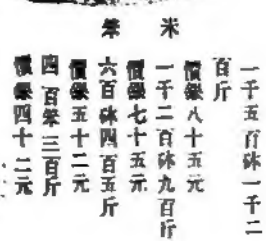 米 笨
一千五百砵一千二
百斤
價銀八十五元
一千二百砵九百斤
價銀七十五元
六百砵四百五斤
價銀五十二元
四百笨三百斤
價銀四十二元